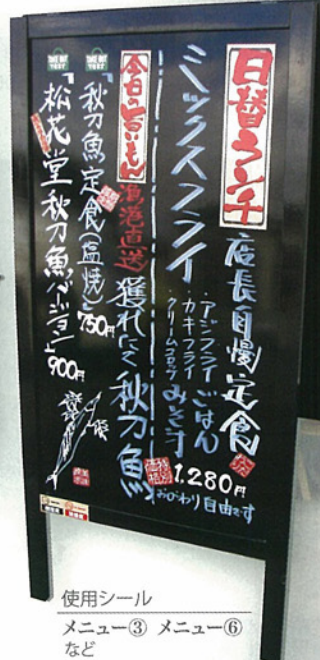 日替ランチ
店長自慢定食
ミックスフライ
・アジフライ
・カキフライ
・クリームコロッケ
ごはん
みそ汁
1,280円
おかわり自由です
今日の旨いもん
漁港直送
獲れたて秋刀魚
TAKE OUT
「秋刀魚定食(塩焼)」
750円
TAKE OUT
「松花堂秋刀魚バージョン」
900円
使用シール
メニュー③ メニュー⑥
など